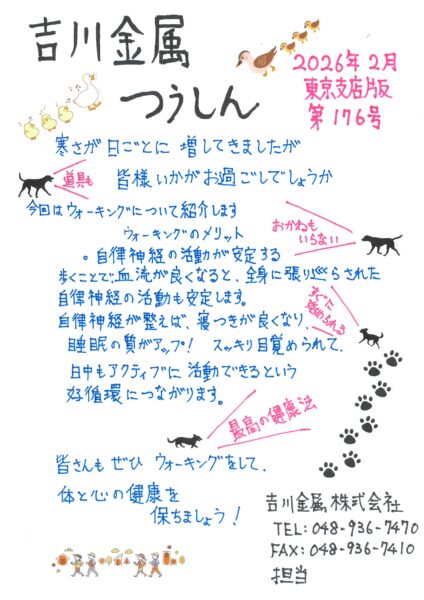 吉川金属
つうしん
2026年2月
東京支店版
第176号
寒さが日ごとに増してきましたが
皆様いかがお過ごしでしょうか
道具も
今回はウォーキングについて紹介します
ウォーキングのメリット
おかねも
いらない
。自律神経の活動が安定する
歩くことで、血流が良くなると、全身に張り巡らされた
自律神経の活動も安定します。
すぐに
始められる
自律神経が整えば、寝つきが良くなり、
睡眠の質がアップ! スッキリ目覚められて、
日中もアクティブに活動できるという
好循環につながります。
最高の健康法
皆さんもぜひウォーキングをして、
体と心の健康を
保ちましょう!
吉川金属株式会社
TEL:048-936-7470
FAX:048-936-7410
担当